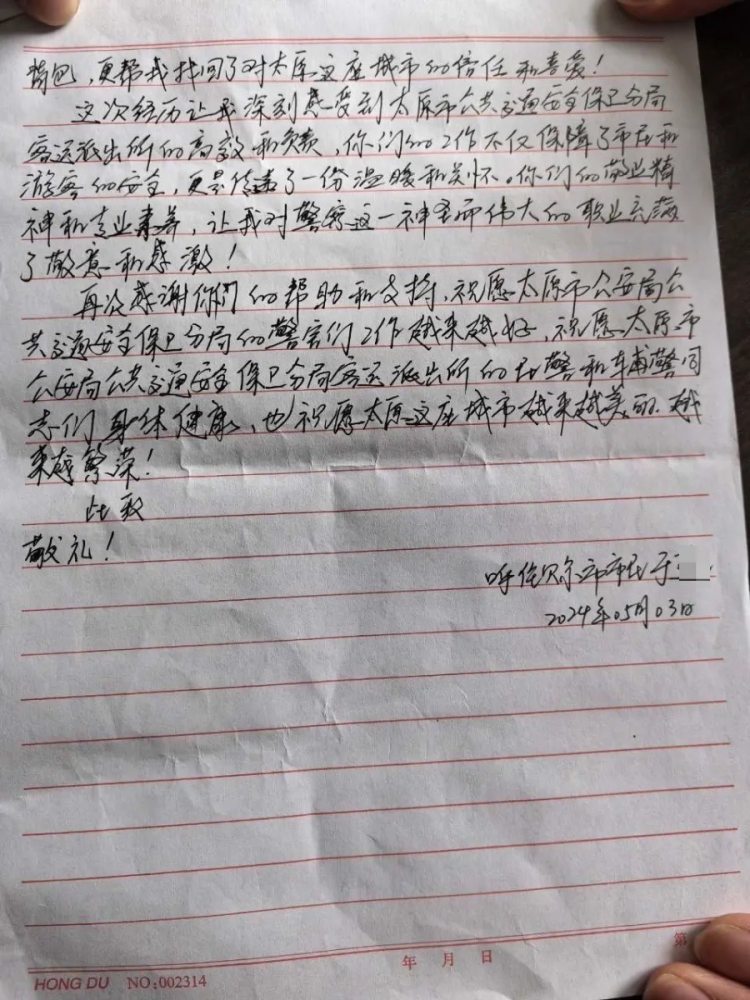 背包，更帮我找回了对太原这座城市的信任和喜爱！
这次经历让我深刻感受到太原市公共交通安全保卫分局
客运派出所的高效和负责，你们的工作不仅保障了市民和
游客的安全，更是传递了一份温暖和关怀。你们的敬业精
神和专业素养，让我对警察这一神圣而伟大的职业充满
了敬意和感激！
再次感谢你们的帮助和支持，祝愿太原市公安局公
共交通安全保卫分局的警官们工作越来越好，祝愿太原市
公安局公共交通安全保卫分局客运派出所的民警和辅警同
志们身体健康，也祝愿太原这座城市越来越美丽，越
来越繁荣！
此致
敬礼！
呼伦贝尔市市民于
2024年05月03日
年 月 日
第
HONG DU NO:002314